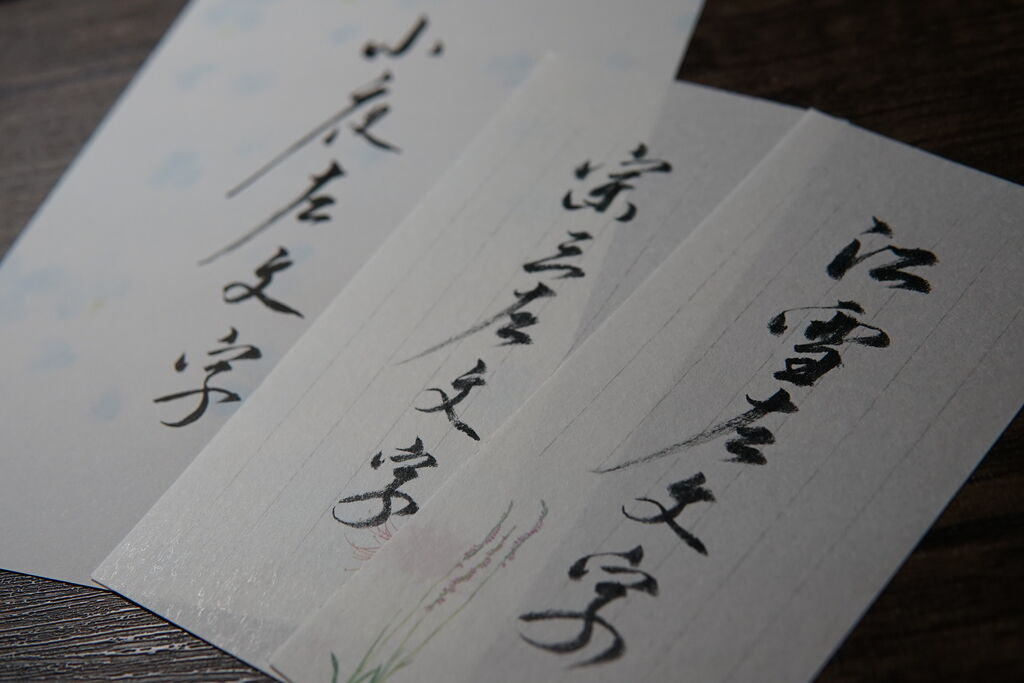 江雪左文字
宗三左文字
小夜左文字